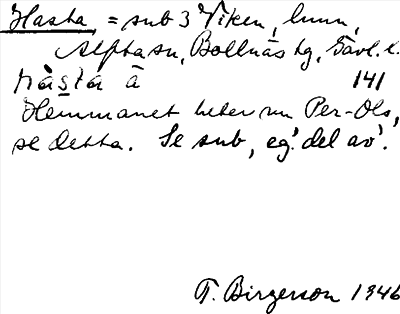 Hasta, = sub 3 Viken, hmn,
Alfta sn, Bollnäs tg, Gävl. l.
hàsta ā 141
Hemmanet heter nu Per-Ols,
se detta. Se sub, eg. del av.
T. Birgerson 1946